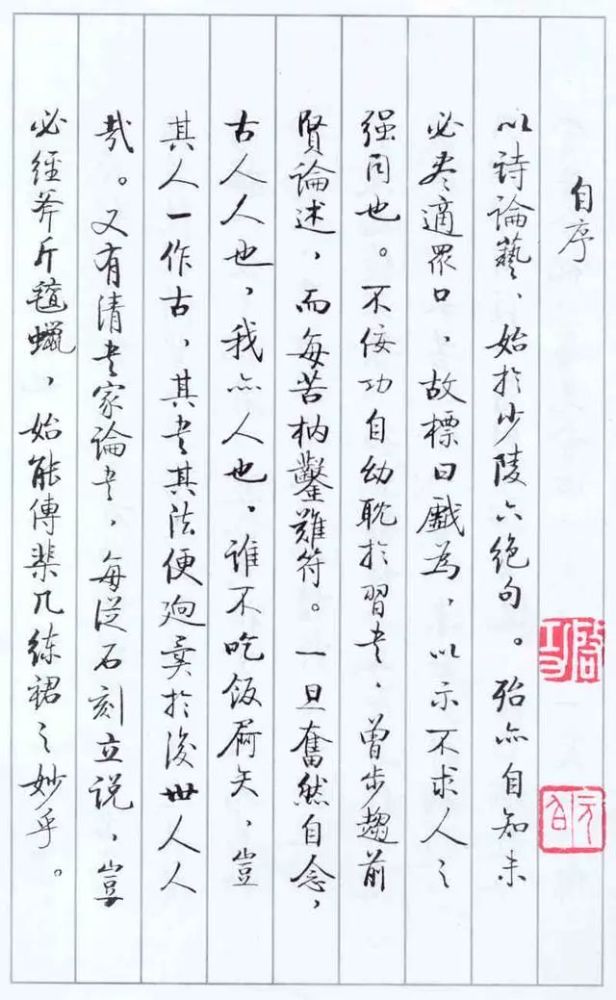 自序
以詩論藝，始於少陵六絕句。殆亦自知未
必盡適眾口，故標曰戲為，以示不求人之
強同也。不佞功自幼耽於習書，曾步趨前
賢論述，而每苦枘鑿難符。一旦奮然自念，
古人人也，我亦人也，誰不吃飯屙矢，豈
其人一作古，其書其法便迥異於後世人人
哉。又有清書家論書，每從石刻立說，豈
必經斧斤氈蠟，始能傳棐几練裙之妙乎。
啟功
元白